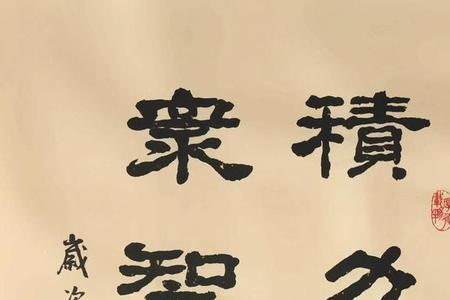 積力
衆智
歲次